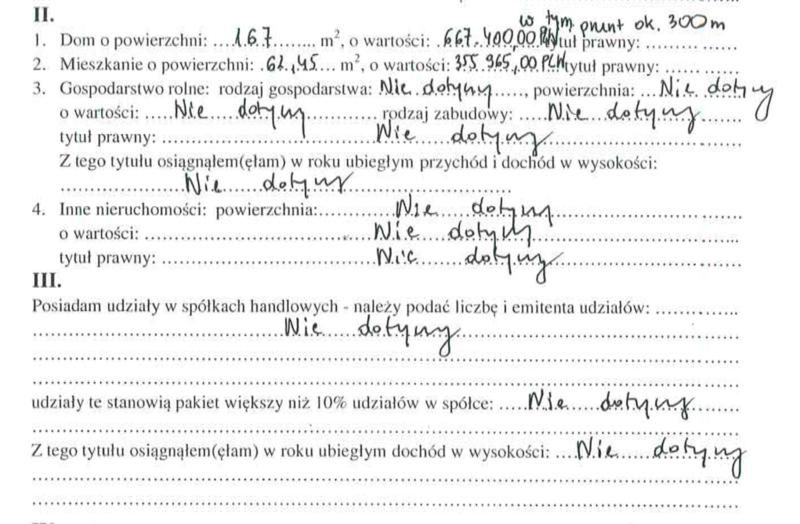 II.
w tym grunt ok. 300m
1. Dom o powierzchni: ....167........ m², o wartości: .667.400,00 PLN tytuł prawny: ............
2. Mieszkanie o powierzchni: .61,45... m², o wartości: 355.965,00 PLN tytuł prawny: ............
3. Gospodarstwo rolne: rodzaj gospodarstwa: Nie dotyczy......, powierzchnia: ...Nie dotyczy
o wartości: .....Nie dotyczy............ rodzaj zabudowy: .....Nie dotyczy.......
tytuł prawny: ..................Nie dotyczy..................
Z tego tytułu osiągnąłem(ęłam) w roku ubiegłym przychód i dochód w wysokości:
..................Nie dotyczy..................
4. Inne nieruchomości: powierzchnia:............Nie dotyczy..................
o wartości: ..................Nie dotyczy..................
tytuł prawny: ..................Nie dotyczy..................
III.
Posiadam udziały w spółkach handlowych - należy podać liczbę i emitenta udziałów: ..............
..................Nie dotyczy..................
udziały te stanowią pakiet większy niż 10% udziałów w spółce: .....Nie dotyczy........
Z tego tytułu osiągnąłem(ęłam) w roku ubiegłym dochód w wysokości: ....Nie dotyczy